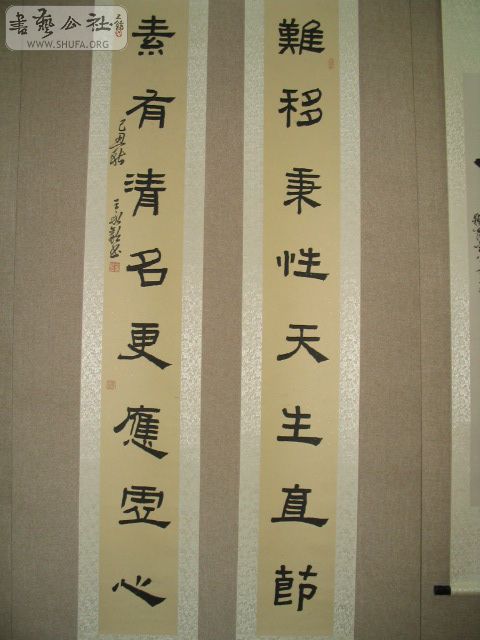 難移秉性天生直節
素有清名更應虛心
己丑秋
書藝公社
WWW.SHUFA.ORG